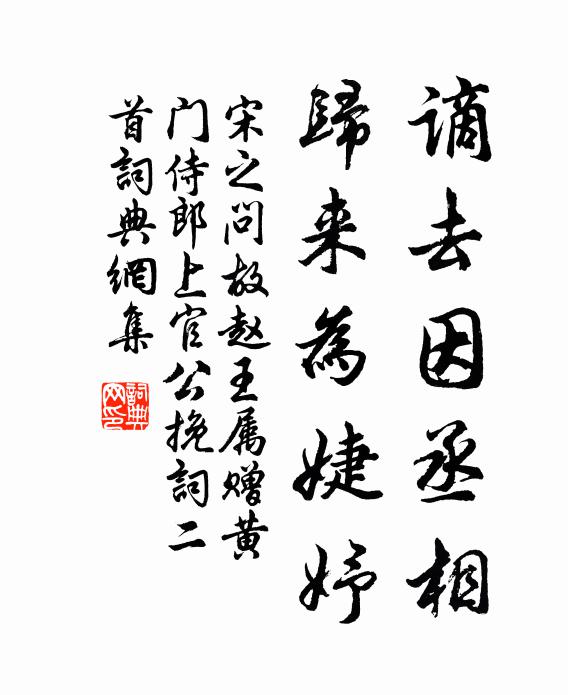 谪去因丞相
歸来為婕妤
宋之问故赵王属赠黄
门侍郎上官公挽詞二
首詞典網集
詞典
网印